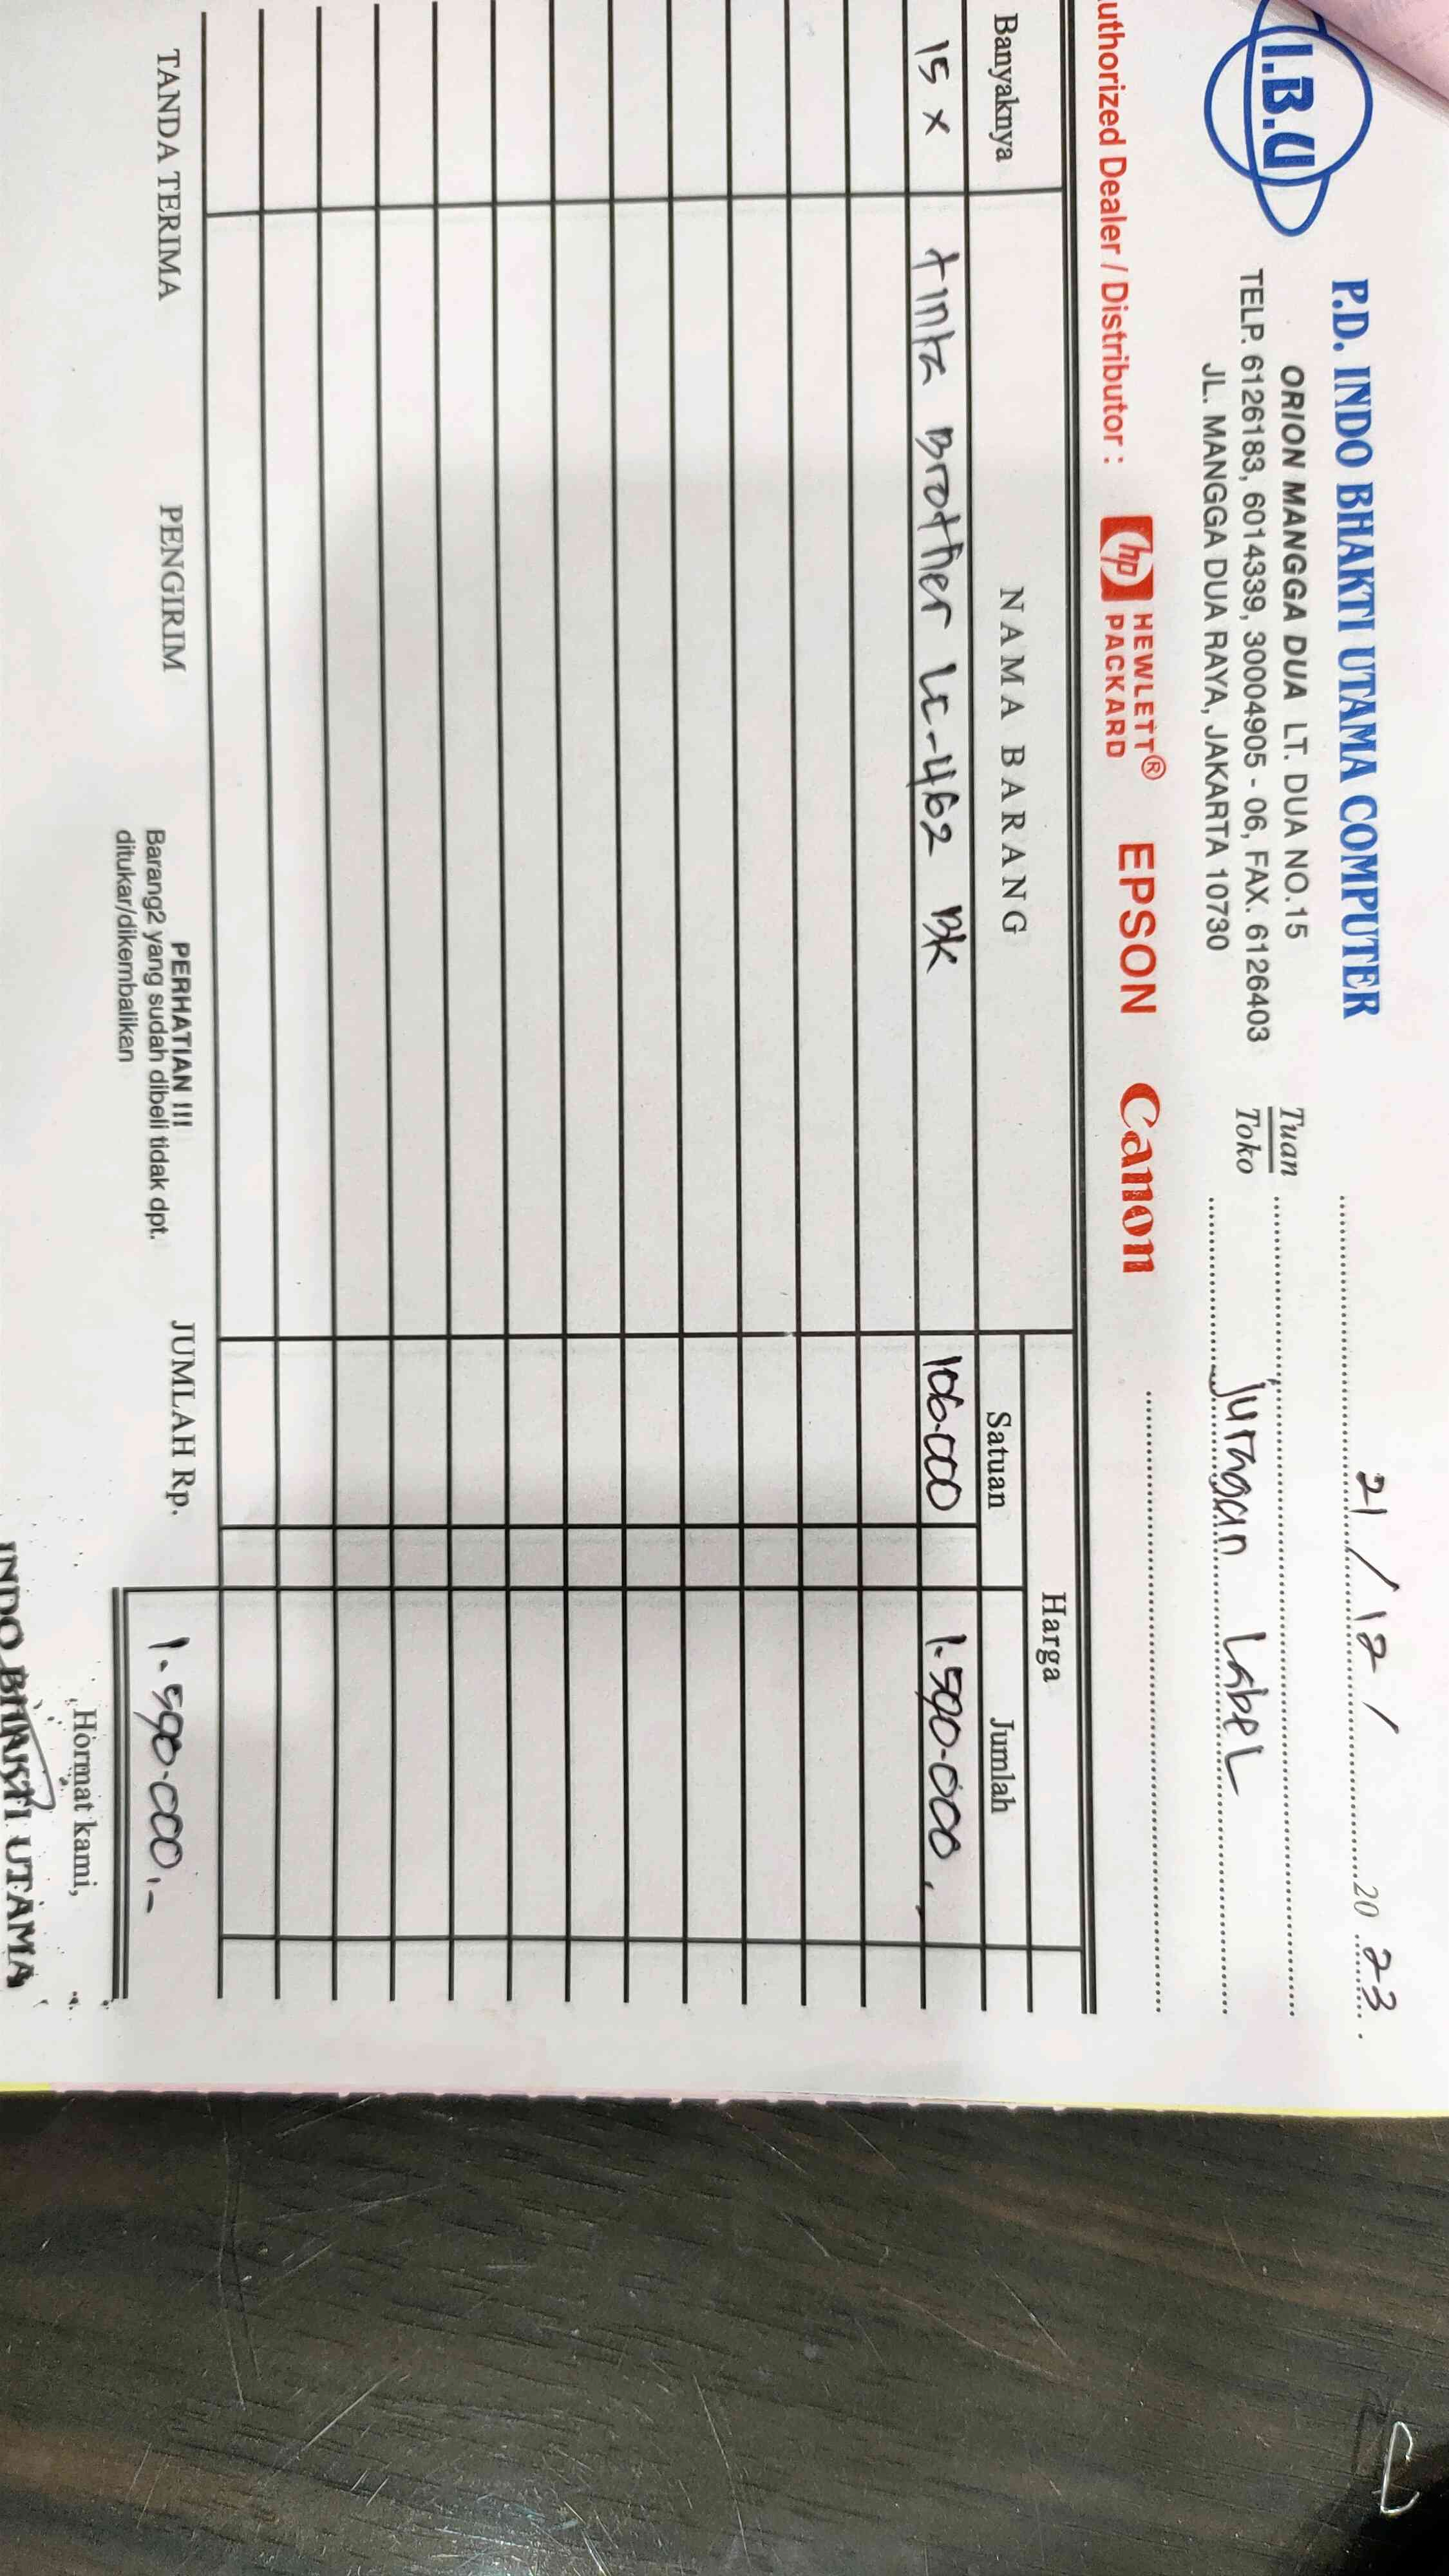 I.B.U
P.D. INDO BHAKTI UTAMA COMPUTER
ORION MANGGA DUA LT. DUA NO.15
TELP. 6126183, 6014339, 30004905 - 06, FAX. 6126403
JL. MANGGA DUA RAYA, JAKARTA 10730
21 / 12 / 20 23
Tuan
Toko
juragan Label
uthorized Dealer / Distributor : hp HEWLETT® PACKARD EPSON Canon
Banyaknya NAMA BARANG Harga
Satuan Jumlah
15 x tinta Brother LC-462 BK 106.000 1.590.000,-
TANDA TERIMA PENGIRIM
PERHATIAN !!!
Barang2 yang sudah dibeli tidak dpt.
ditukar/dikembalikan
JUMLAH Rp. 1.590.000,-
Hormat kami,
INDO BHAKTI UTAMA